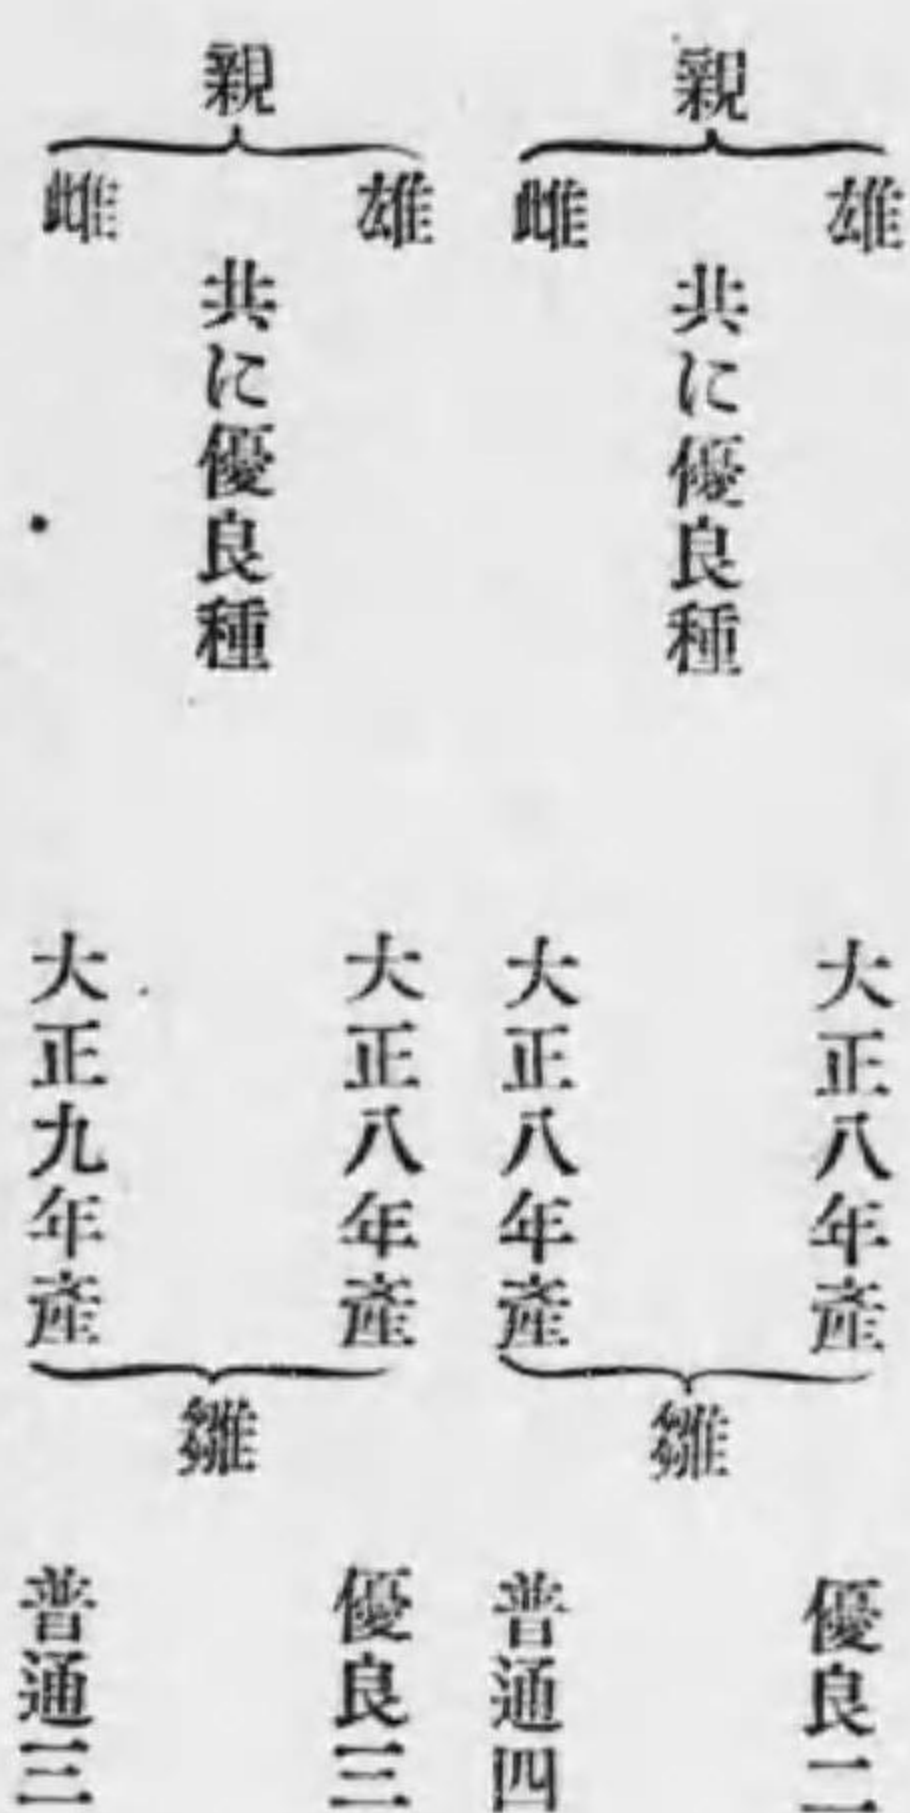 親
雄
雌
共に優良種
大正八年產
大正八年產
雛
優良二
普通四
親
雄
雌
共に優良種
大正八年產
大正九年產
雛
優良三
普通三